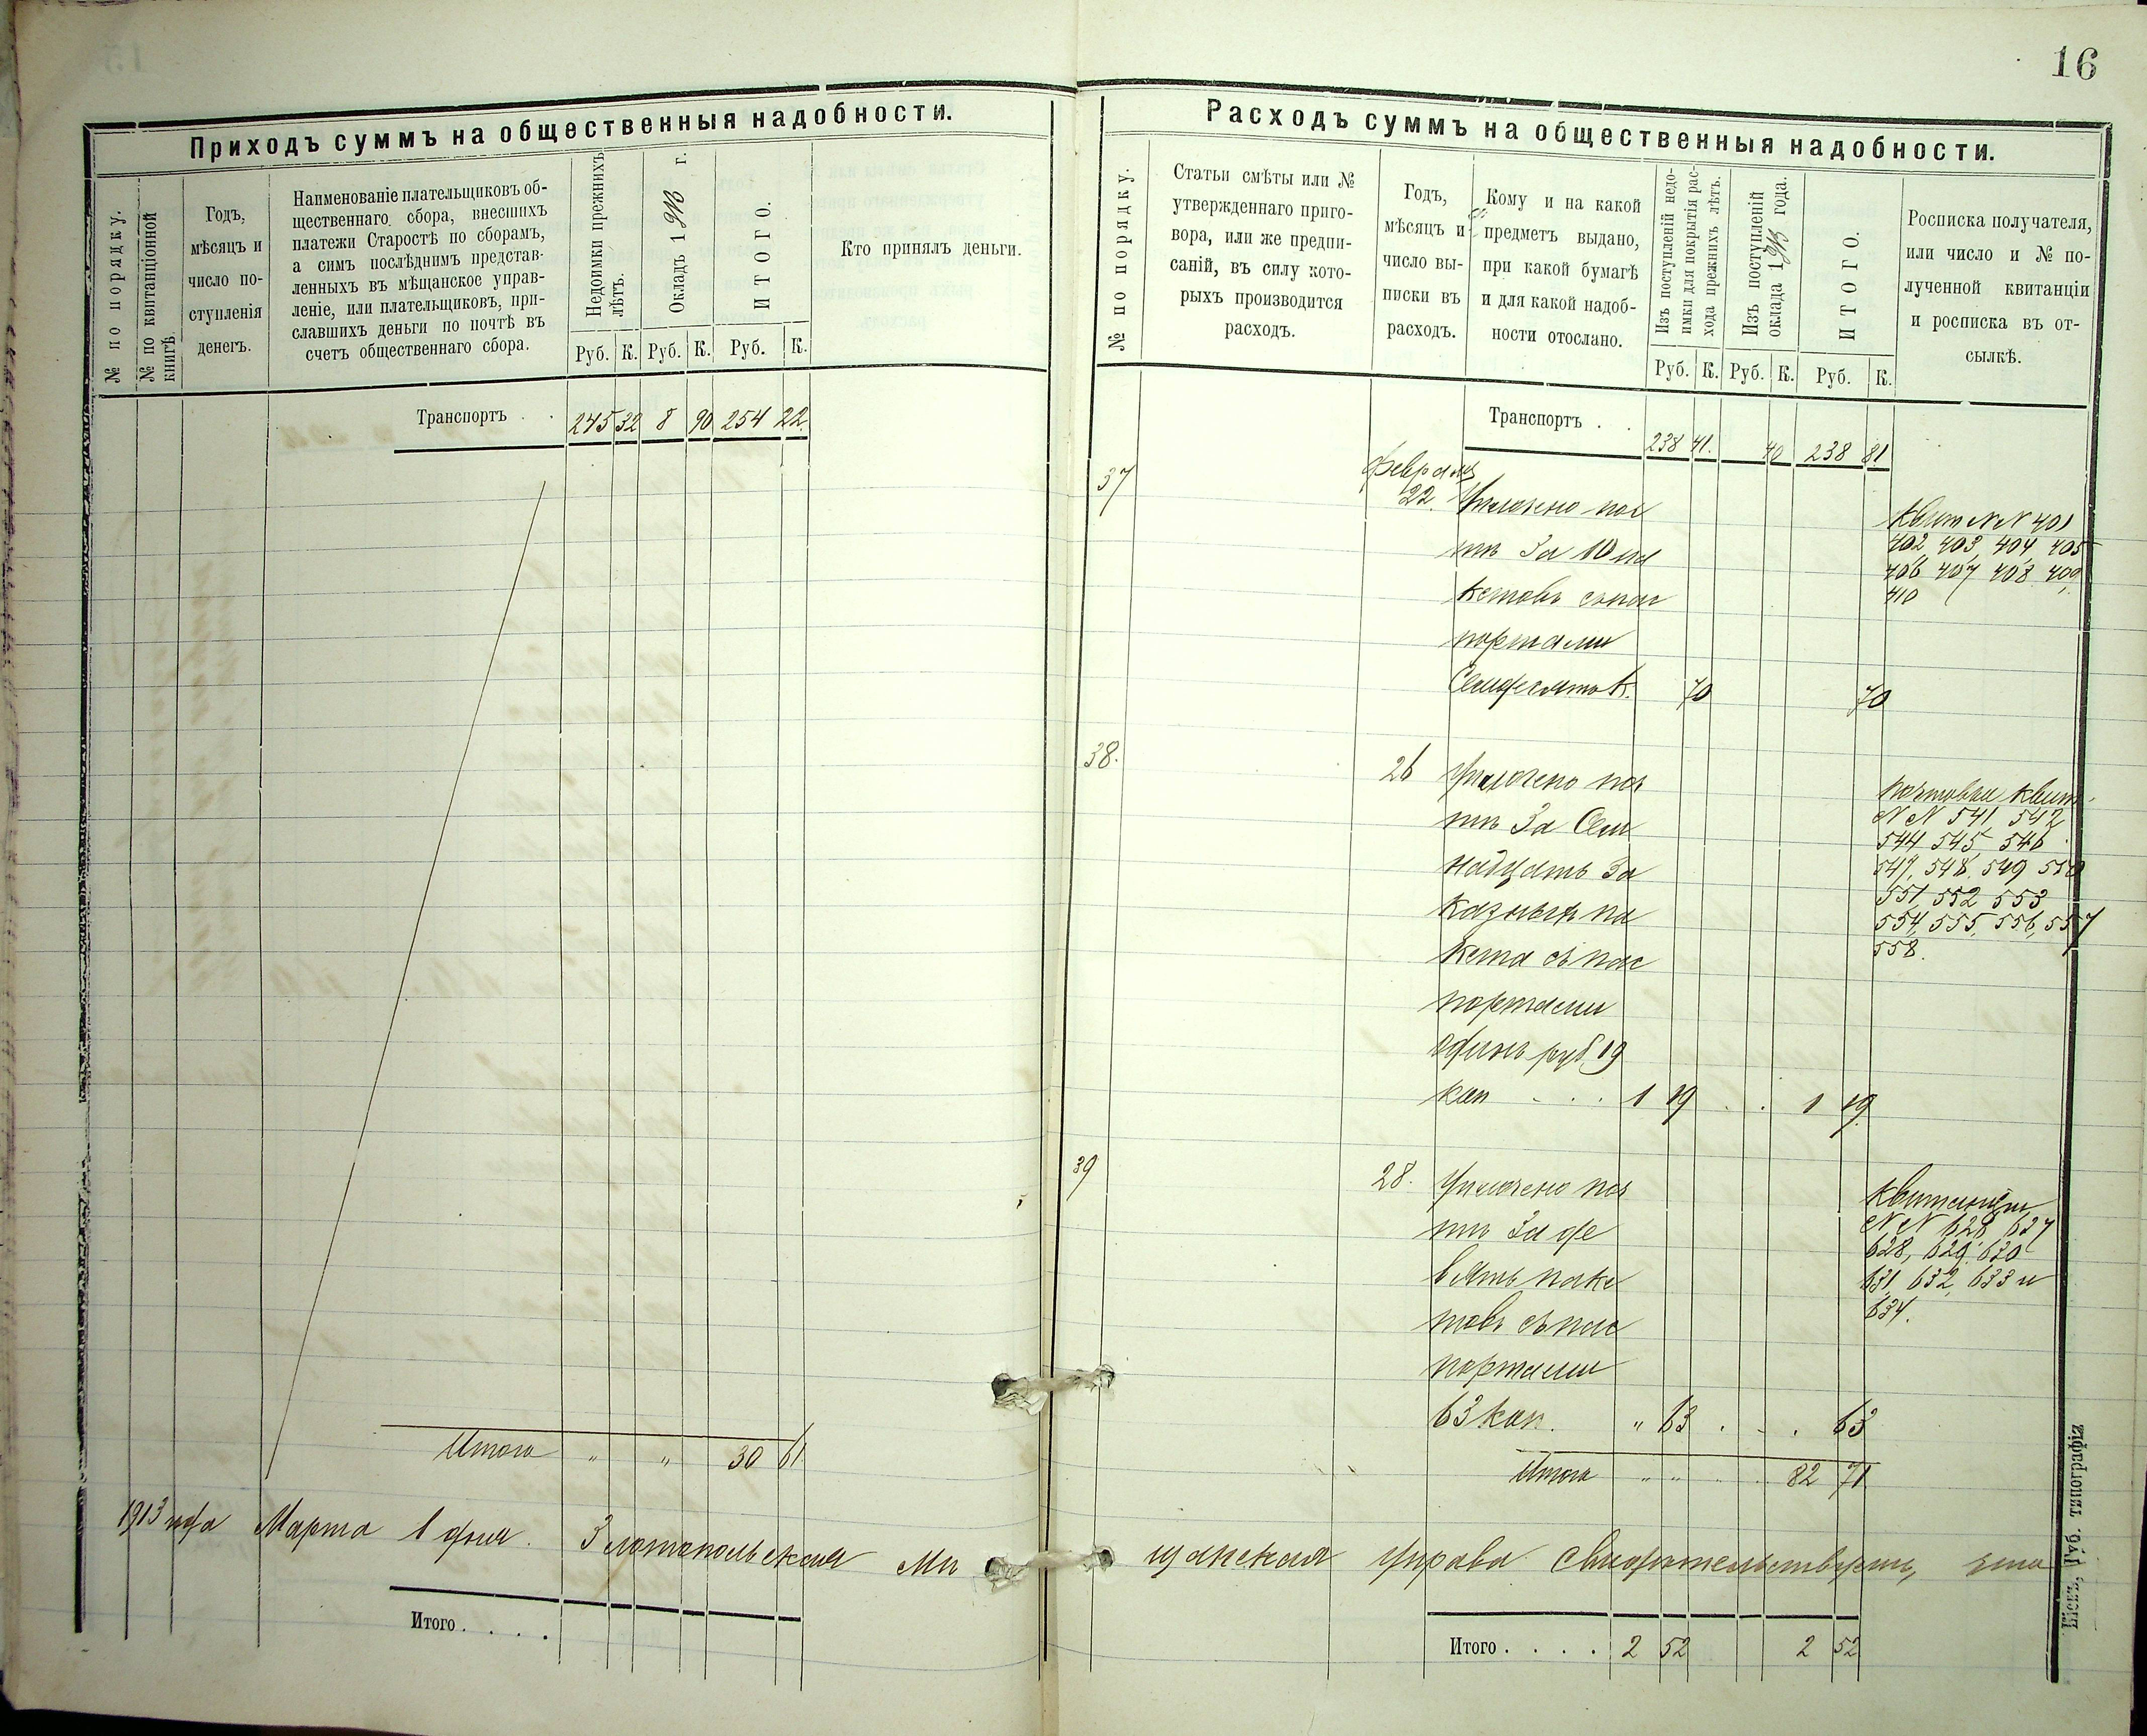 16
Приходъ суммъ на общественныя надобности.
№ по порядку.
№ по квитанціонной
книгѣ.
Годъ,
мѣсяцъ и
число по-
ступленія
денегъ.
Наименованіе плательщиковъ об-
щественнаго сбора, внесшихъ
платежи Старостѣ по сборамъ,
а симъ послѣднимъ представ-
ленныхъ въ мѣщанское управ-
леніе, или плательщиковъ, при-
славшихъ деньги по почтѣ въ
счетъ общественнаго сбора.
Недоимки прежнихъ
лѣтъ.
Окладъ 1913 г.
ИТОГО.
Руб. К. Руб. К. Руб. К.
Кто принялъ деньги.
Транспортъ . . 245 32 8 90 254 22.
Итого " " 30 61.
1913 года Марта 1 дня. Златопольская Мѣ
Итого . . . .
Расходъ суммъ на общественныя надобности.
№ по порядку.
Статьи смѣты или №
утвержденнаго приго-
вора, или же предпи-
саній, въ силу кото-
рыхъ производится
расходъ.
Годъ,
мѣсяцъ и
число вы-
писки въ
расходъ.
Кому и на какой
предметъ выдано,
при какой бумагѣ
и для какой надоб-
ности отослано.
Изъ поступленій недо-
имки для покрытія рас-
хода прежнихъ лѣтъ.
Изъ поступленій
оклада 1913 года.
ИТОГО.
Руб. К. Руб. К. Руб. К.
Росписка получателя,
или число и № по-
лученной квитанціи
и росписка въ от-
сылкѣ.
Транспортъ . . 238 41. 40 238 81
37 февраля
22. Уплочено поч
тѣ За 10 па
кетовъ съ пас
портами
Семдесятъ к. 70 70
Квит NN 401
402, 403, 404, 405
406, 407, 408, 409,
410
38. 26 Уплочено поч
тѣ За Сем
надцать За
казныхъ па
кета съ пас
портами
одинъ руб 19
коп . . . 1 19 . . 1 19.
почтовыи квит.
NN 541 542
544 545 546
547, 548, 549 550
551 552 553
554, 555, 556, 557
558.
39 28. Уплочено поч
тѣ За де
вять паке
товъ съ пас
портами
63 коп. " 63 . . . 63
квитанции
NN 628, 627
628, 629, 630
631, 632, 633 и
634.
Итого " " . . 82 71
щанская Управа свидѣтельствуетъ, что
Итого . . . . 2 52 2 52
Кіевъ, Губ. типографія